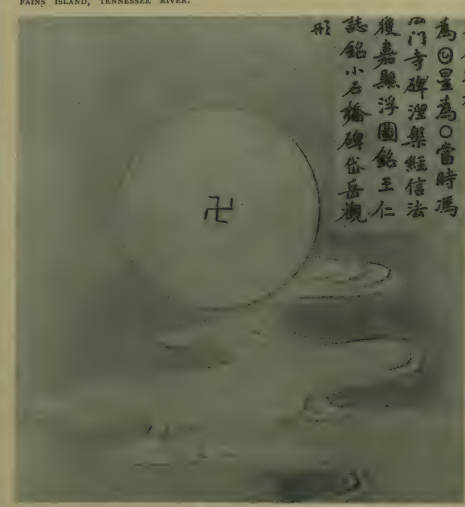 FAINS ISLAND, TENNESSEE RIVER.
為𡆠星為〇當時馮
门寺碑涅槃經信法
獲嘉縣浮圖銘王仁
誌銘小石橋碑岱岳觀
形
卍